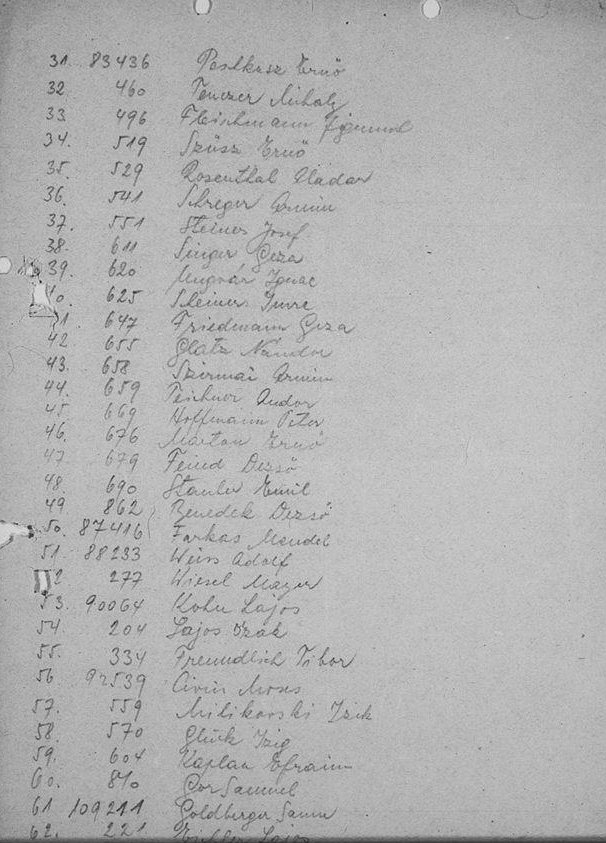 31. 83436 Pastkusz Ernö
32. 460 Tenczer Mihaly
33 496 Fleischmann Zigmund
34. 519 Szüsz Ernö
35. 529 Rosenthal Aladar
36. 541 Schreger Armin
37. 551 Steiner Josef
38. 611 Singer Geza
39. 620 Ungvár Ignac
40. 625 Steiner Imre
41 647 Friedmann Geza
42 655 Glatz Nándor
43. 658 Szirmai Armin
44. 659 Teichner Andor
45 669 Hoffmann Peter
46. 676 Marton Ernö
47 679 Feind Dezsö
48. 690 Stauber Emil
49 862 Benedek Dezsö
50. 87416 Farkas Mendel
51. 88233 Weiss Adolf
52 277 Wiesel Mayer
53. 90064 Kohn Lajos
54. 204 Lajos Izák
55. 334 Freundlich Tibor
56 92539 Civin Moses
57. 559 Milikovski Izik
58. 570 Glück Izig
59. 604 Kaplan Efraim
60. 810 Gor Samuel
61 109211 Goldberger Samu
62. 221 Lajos